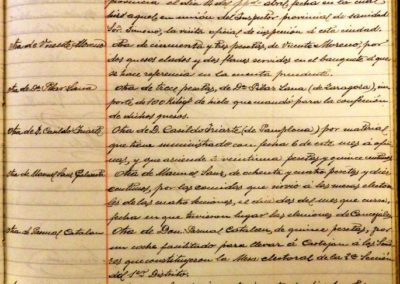 provincia el dia 4 del ppdo Abril, fecha en la cual
hizo aquel, en union del Inspector provincial de sanidad
Sr. Jimeno, la visita oficial de inspeccion á esta ciudad.
Otra de Vicente Moreno
Otra de cincuenta y tres pesetas, de Vicente Moreno, por
dos quesos elados y dos flanes servidos en el banquete á que
se hace referencia en la cuenta precedente.
Otra de Dª Pilar Lana
Otra de trece pesetas, de Dª Pilar Lana (de Zaragoza), im-
porte de 100 kilogs de hielo que mandó para la confeccion
de dichos quesos.
Otra de D. Canildo Iriarte
Otra de D. Canildo Iriarte (de Pamplona) por material
que tiene suministrado con fecha 6 de este mes á ofici-
nas, y que asciende á veintiuna pesetas y quince centimos
Otra de Manuel Sanz
Otra de Manuel Sanz, de ochenta y cuatro pesetas, y diez
centimos, por las comidas que sirvió á las mesas electora-
les de las cuatro secciones, el dia dos del mes que cursa,
fecha en que tuvieron lugar las elecciones de Concejales.
Otra de Pascual Catalan
Otra de Don Pascual Catalan, de quince pesetas, por
un coche facilitado para llevar á Cortejan á los Seño-
res que constituyeron la Mesa electoral de la 2ª Seccion
del 1er Distrito.